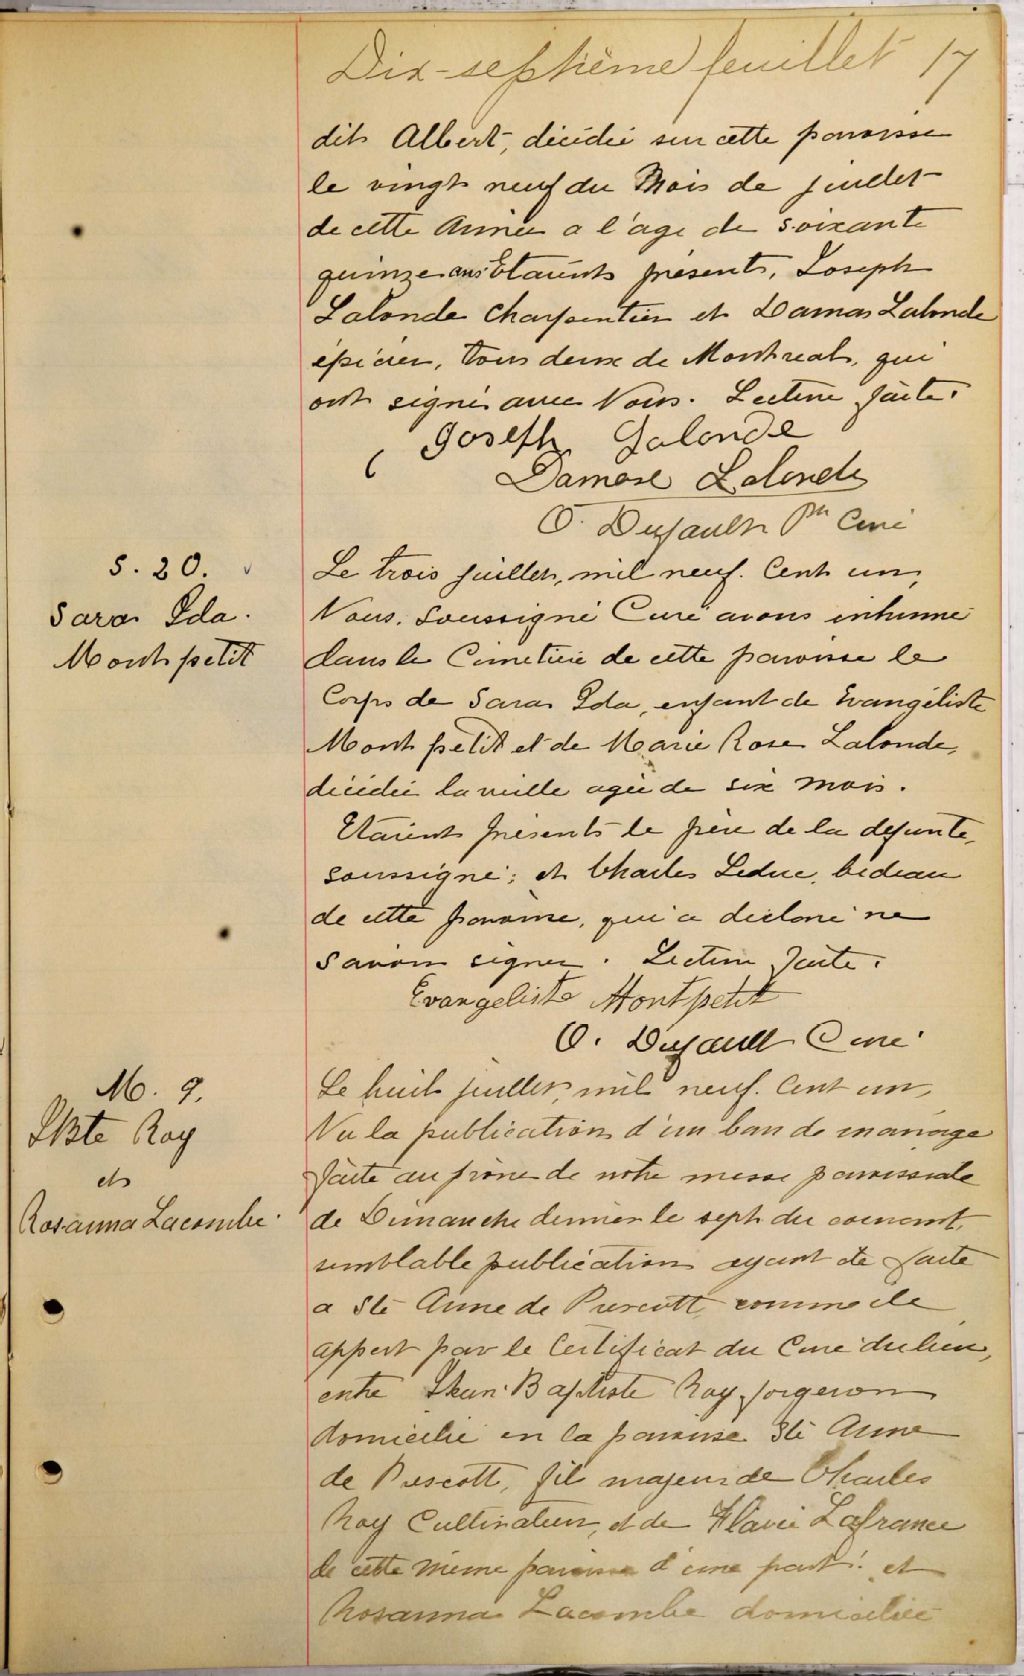 Dix-septième feuillet 17
dit Albert, décidée sur cette paroisse
le vingt neuf du Mois de juillet
de cette Année a l'age de soixante
quinze ans Etaients présents, Joseph
Lalonde Charpentier et Damas Lalonde
épicier, tous deux de Montreal, qui
ont signé avec Nous. Lecture faite.
Joseph Lalonde
Damase Lalonde
O. Dufault Ptr Curé
S. 20.
Sara Ida.
Montpetit
Le trois juillet, mil neuf. Cent un,
Nous. Soussigné Curé avons inhumé
dans le Cimetière de cette paroisse le
Corps de Sara Ida, enfant de Evangéliste
Montpetit et de Marie Rose Lalonde,
décidée la veille agée de six mois.
Etaient présents le père de la defunte,
soussigné; et Charles Leduc, bedeau
de cette paroisse, qui a déclaré ne
savoir signer. Lecture faite.
Evangeliste Montpetit
O. Dufault Curé
M. 9.
JBte Roy
et
Rosanna Lacombe.
Le huit juillet, mil neuf. Cent un,
Vu la publication d'un ban de mariage
faite au prône de notre messe paroissiale
de Dimanche dernier le sept du courant,
semblable publication ayant été faite
a Ste Anne de Prescott comme il
appert par le Certificat du Curé du lieu,
entre Jean-Baptiste Roy forgeron
domicilié en la paroisse Ste Anne
de Prescott, fil majeur de Charles
Roy Cultivateur, et de Flavie Lafrance
de cette même paroisse d'une part: et
Rosanna Lacombe domiciliée